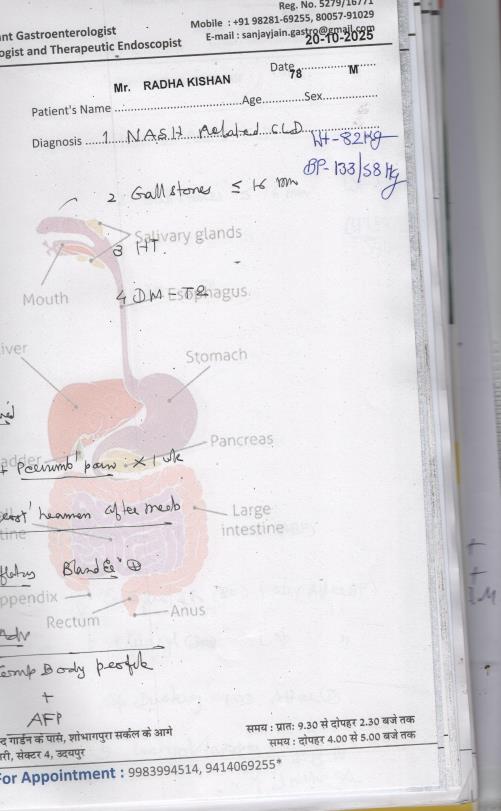 Reg. No. 5279/16771
nt Gastroenterologist
Mobile : +91 98281-69255, 80057-91031
ogist and Therapeutic Endoscopist
E-mail : sanjayjain.gastro@gmail.com
20-10-2025
Date
Mr. RADHA KISHAN
78
M
Patient's Name
Age
Sex
Diagnosis
1 NASH Related CLD
Wt-82Kg
BP-133/58 Hg
2 Gall stones ≤ 16 mm
Salivary glands
3 HT.
Mouth
4 DM-T2
Esophagus
iver
Stomach
Pancreas
adder
+ Periumb' pain x 1 wk
heaviness after meals
Large
intestine
tine
Bland EE' ⊕
ppendix
Rectum
Anus
Adv
Comp Body profile
+
AFP
द गार्डन के पासे, शोभागपुरा सर्कल के आगे
री, सेक्टर 4, उदयपुर
समय : प्रातः 9.30 से दोपहर 2.30 बजे तक
समय : दोपहर 4.00 से 5.00 बजे तक
For Appointment : 9983994514, 9414069255*